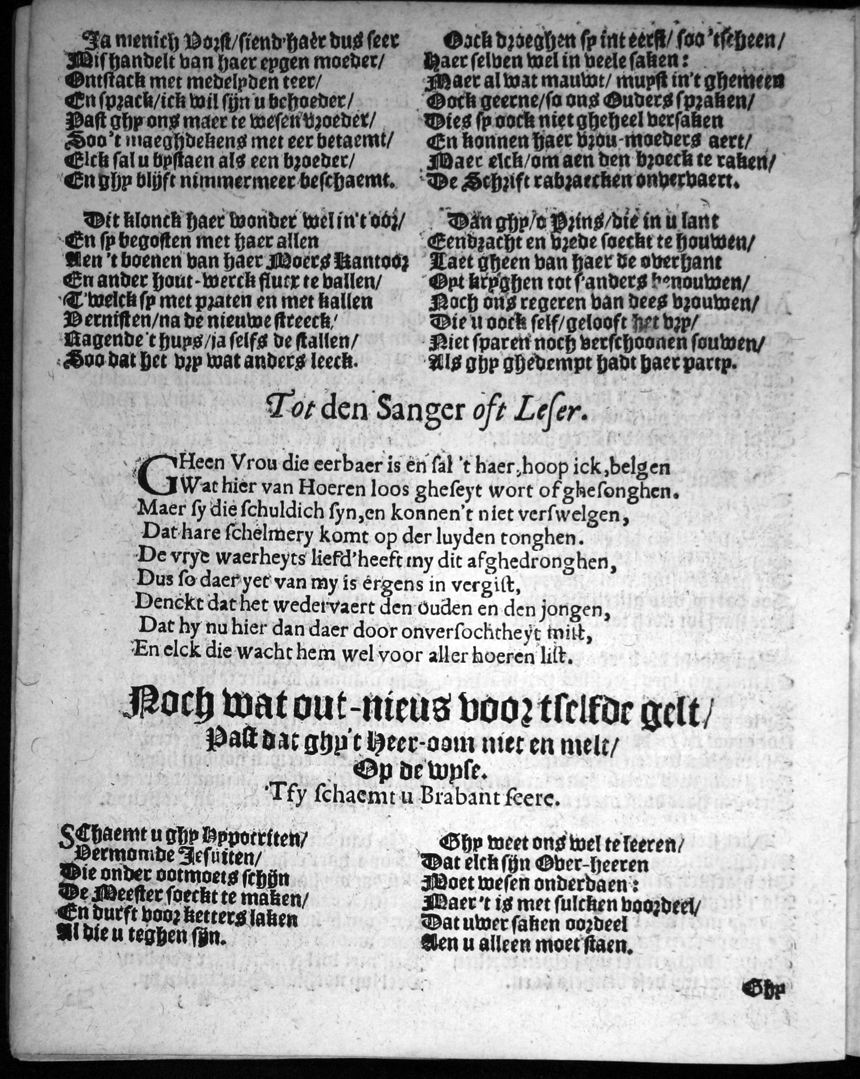 Ja menich Vorst/siend'haer dus seer
Mishandelt van haer eygen moeder/
Ontstack met medelyden teer/
En sprack/ick wil sijn u behoeder/
Past ghy ons maer te wesen vroeder/
Soo 't maeghdekens met eer betaemt/
Elck sal u bystaen als een broeder/
En ghy blijft nimmermeer beschaemt.
Dit klonck haer wonder wel in't oor/
En sy begosten met haer allen
Aen 't boenen van haer Moers Kantoor
En ander hout-werck flucx te vallen/
T'welck sy met praten en met kallen
Vernisten/na de nieuwe streeck/
Ragende 't huys/ja selfs de stallen/
Soo dat het vry wat anders leeck.
Oock droeghen sy int eerst/ soo 'tscheen/
Haer selven wel in veele saken:
Maer al wat mauwt/ muyst in't ghemeen
Oock geerne/so ons Ouders spraken/
Dies sy oock niet gheheel versaken
En konnen haer vrou-moeders aert/
Maer elck/om aen den broeck te raken/
De Schrift rabraecken onvervaert.
Dan ghy/o Prins/die in u lant
Eendracht en vrede soeckt te houwen/
Laet gheen van haer de overhant
Oyt kryghen tot s'anders benouwen/
Noch ons regeren van dees vrouwen/
Die u oock self/gelooft het vry/
Niet sparen noch verschoonen souwen/
Als ghy ghedempt hadt haer party.
Tot den Sanger oft Leser.
GHeen Vrou die eerbaer is en sal 't haer,hoop ick,belgen
Wat hier van Hoeren loos gheseyt wort of ghesonghen.
Maer sy die schuldich syn,en konnen't niet verswelgen,
Dat hare schelmery komt op der luyden tonghen.
De vrye waerheyts liefd'heeft my dit afghedronghen,
Dus so daer yet van my is ergens in vergist,
Denckt dat het wedervaert den ouden en den jongen,
Dat hy nu hier dan daer door onversochtheyt mist,
En elck die wacht hem wel voor aller hoeren list.
Noch wat out-nieus voor tselfde gelt/
Past dat ghy't Heer-oom niet en melt/
Op de wyse.
'Tsy schaemt u Brabant seere.
SChaemt u ghy Hypocriten/
Vermomde Jesuiten/
Die onder ootmoets schijn
De Meester soeckt te maken/
En durft voor ketters laken
Al die u teghen sijn.
Ghy weet ons wel te leeren/
Dat elck sijn Over-heeren
Moet wesen onderdaen:
Maer 't is met sulcken voordeel/
Dat uwer saken oordeel
Aen u alleen moet staen.
Ghy